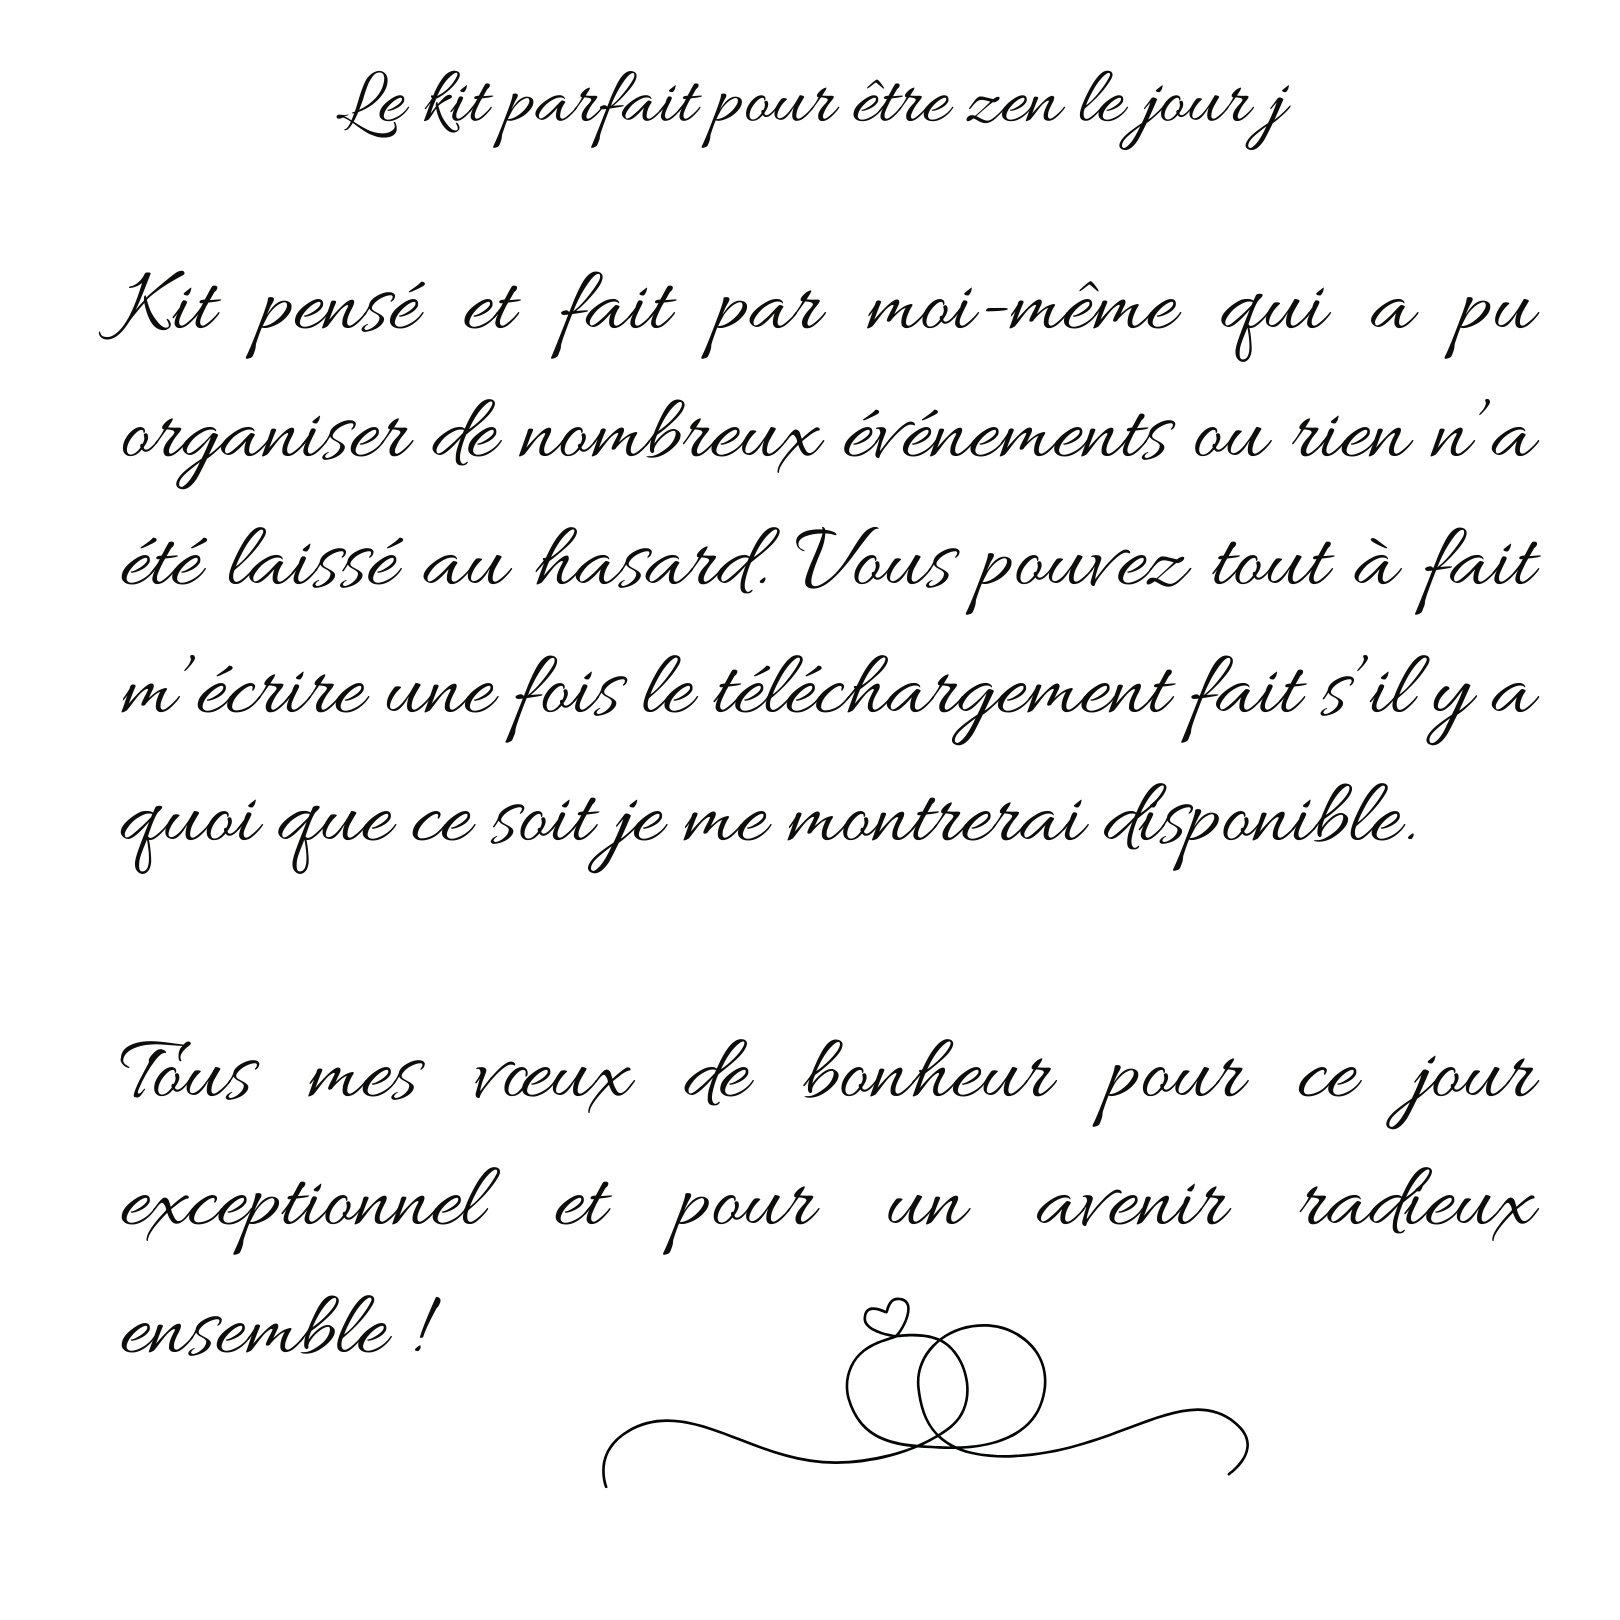 Le kit parfait pour être zen le jour j
Kit pensé et fait par moi-même qui a pu
organiser de nombreux événements ou rien n'a
été laissé au hasard. Vous pouvez tout à fait
m'écrire une fois le téléchargement fait s'il y a
quoi que ce soit je me montrerai disponible.
Tous mes vœux de bonheur pour ce jour
exceptionnel et pour un avenir radieux
ensemble !